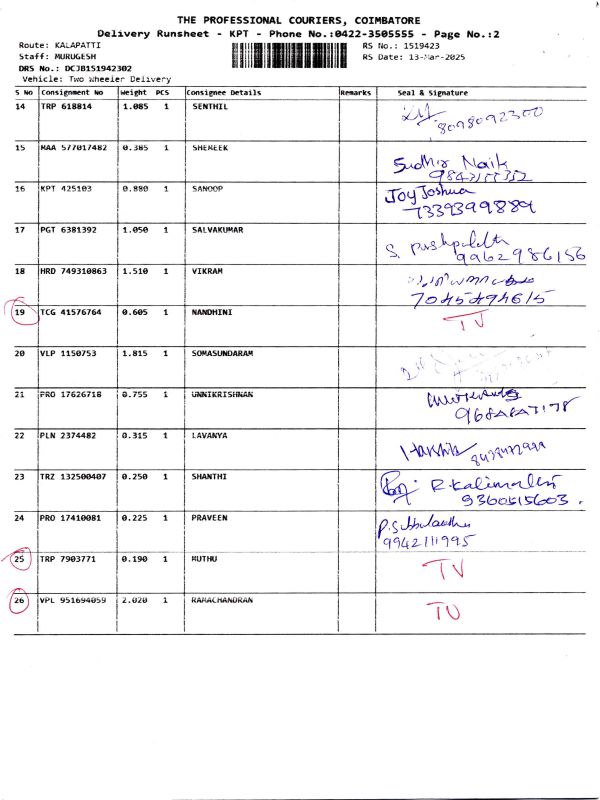 THE PROFESSIONAL COURIERS, COIMBATORE
Delivery Runsheet - KPT - Phone No.:0422-3505555 - Page No.:2
Route: KALAPATTI RS No.: 1519423
Staff: MURUGESH RS Date: 13-Mar-2025
DRS No.: DCJB151942302
Vehicle: Two Wheeler Delivery
S No Consignment No Weight PCS Consignee Details Remarks Seal & Signature
14 TRP 618814 1.085 1 SENTHIL
8098092300
15 MAA 577017482 0.385 1 SHEMEEK
Sudhir Naik
16 KPT 425103 0.880 1 SANOOP
Joy Joshua
7339399889
17 PGT 6381392 1.050 1 SALVAKUMAR
S. Pushpalatha
9962986156
18 HRD 749310863 1.510 1 VIKRAM
7045494615
19 TCG 41576764 0.605 1 NANDHINI
TV
20 VLP 1150753 1.815 1 SOMASUNDARAM
21 PRO 17626718 0.755 1 UNNIKRISHNAN
22 PLN 2374482 0.315 1 LAVANYA
23 TRZ 132500407 0.250 1 SHANTHI
9360515603.
24 PRO 17410081 0.225 1 PRAVEEN
9942111995
25 TRP 7903771 0.190 1 MUTHU
TV
26 VPL 951694059 2.020 1 RAMACHANDRAN
TV